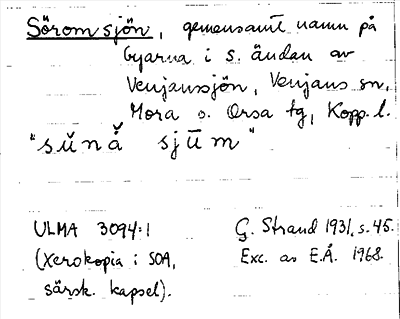 Sörom sjön, gemensamt namn på
byarna i s. ändan av
Venjanssjön, Venjans sn,
Mora o. Orsa tg, Kopp. l.
"sŭnå̆ sjūm"
ULMA 3094:1
(Xerokopia i SOA,
särsk. kapsel).
G. Strand 1931, s. 45.
Exc. av E.Å. 1968.